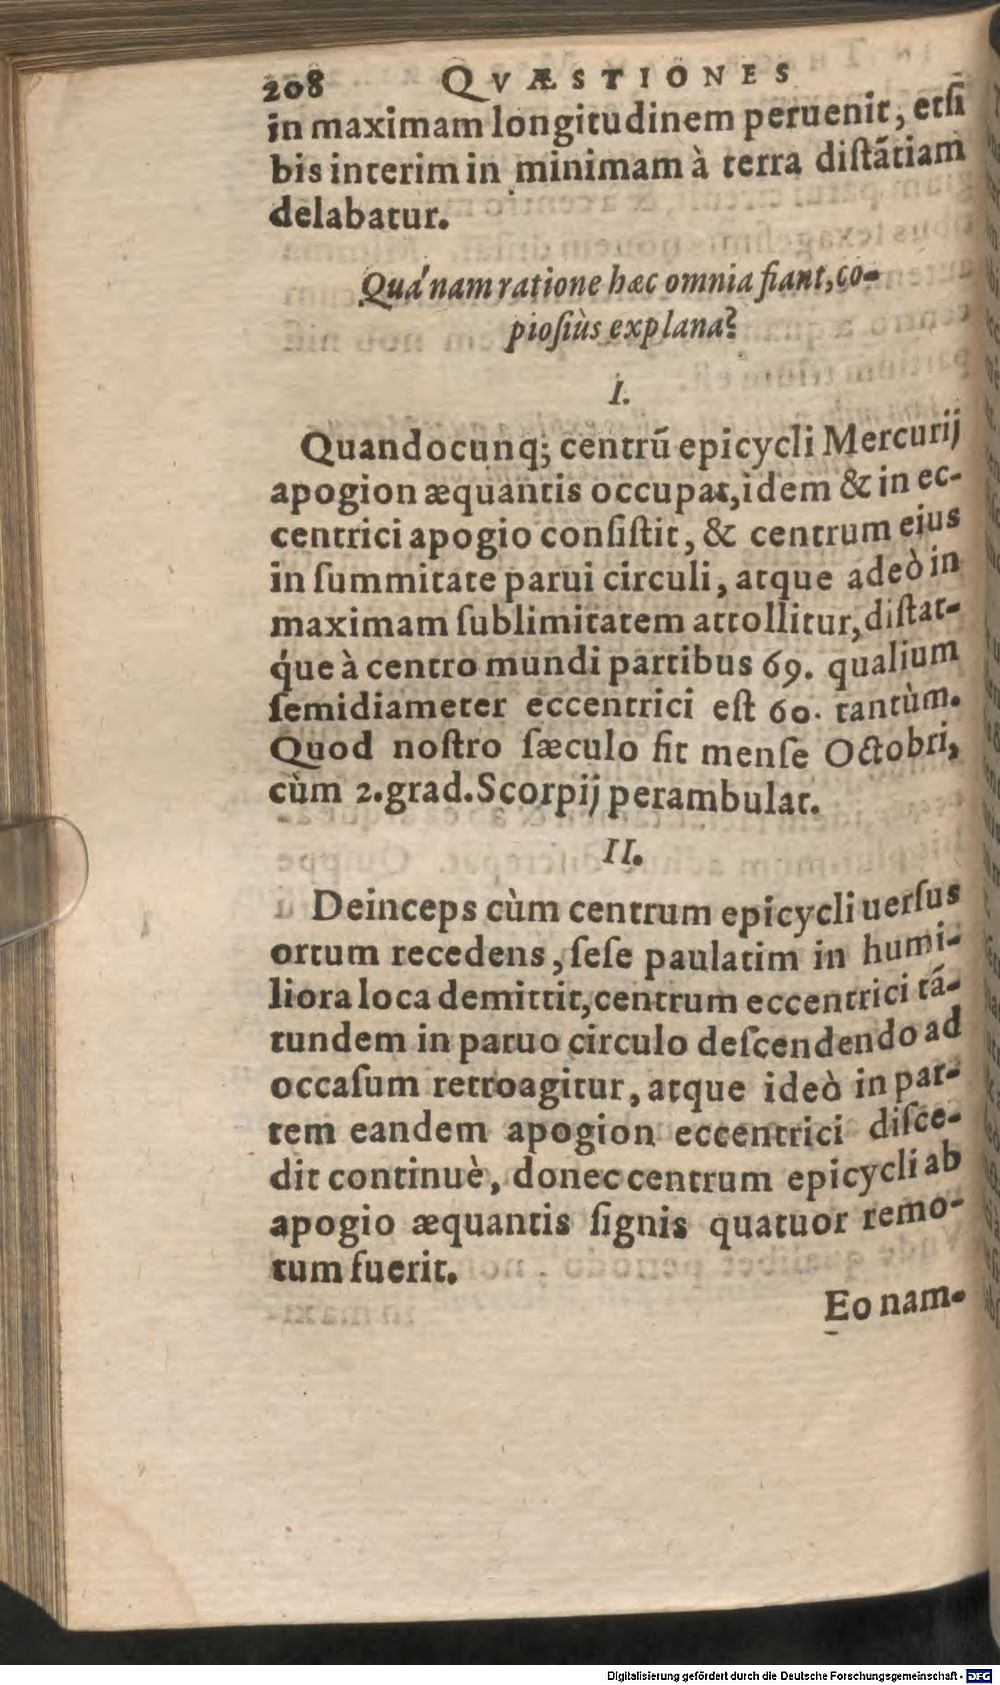 208 QVÆSTIONES
in maximam longitudinem peruenit, etsi
bis interim in minimam à terra distãtiam
delabatur.
Qua'nam ratione hæc omnia fiant, co-
piosiùs explana?
I.
Quandocunq; centrũ epicycli Mercurij
apogion æquantis occupat, idem & in ec-
centrici apogio consistit, & centrum eius
in summitate parui circuli, atque adeò in
maximam sublimitatem attollitur, distat-
q́ue à centro mundi partibus 69. qualium
semidiameter eccentrici est 60. tantùm.
Quod nostro sæculo fit mense Octobri,
cùm 2. grad. Scorpij perambulat.
II.
Deinceps cùm centrum epicycli uersus
ortum recedens, sese paulatim in humi-
liora loca demittit, centrum eccentrici tã-
tundem in paruo circulo descendendo ad
occasum retroagitur, atque ideò in par-
tem eandem apogion eccentrici disce-
dit continuè, donec centrum epicycli ab
apogio æquantis signis quatuor remo-
tum fuerit.
Eo nam-
Digitalisierung gefördert durch die Deutsche Forschungsgemeinschaft - DFG